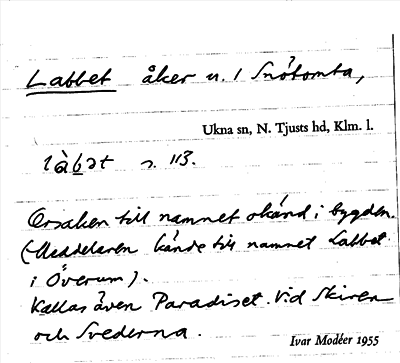 Labbet åker u. 1 Snötomta,
Ukna sn, N. Tjusts hd, Klm. l.
làbət s. 113.
Orsaken till namnet okänd i bygden.
(Meddelaren kände till namnet Labbet
i Överum).
Kallas även Paradiset. Vid Skiren
och Svederna.
Ivar Modéer 1955